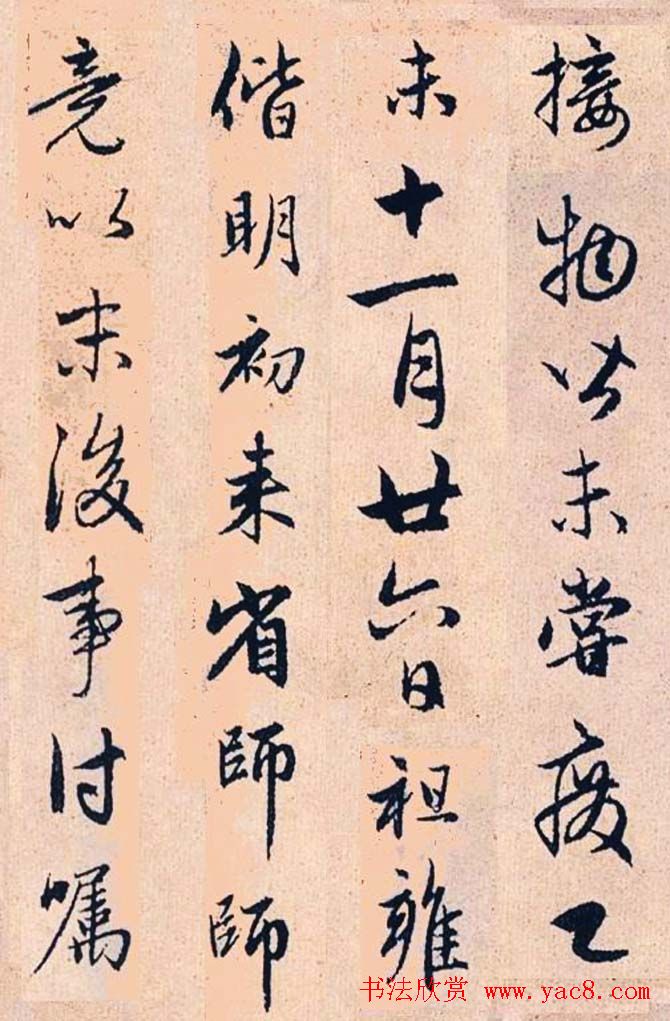 接物皆未嘗廢乙
未十一月廿六日祖
偕明初来省師師
竟以末後事付囑
书法欣赏 www.yac8.com